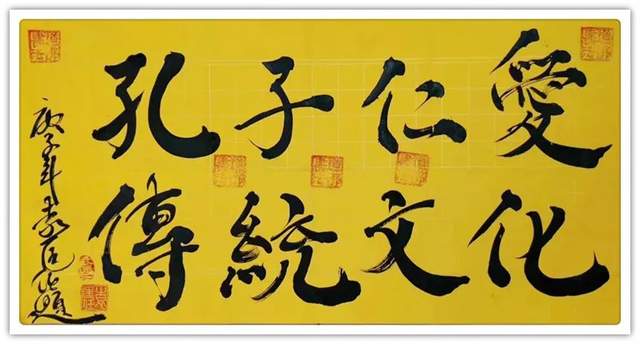 孔子仁愛
傳統文化
庚子年袁題